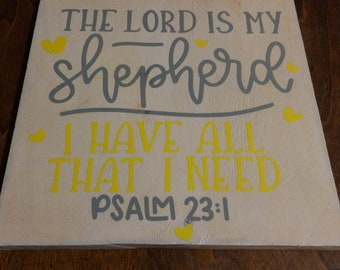 THE LORD IS MY
shepherd
I HAVE ALL
THAT I NEED
PSALM 23:1